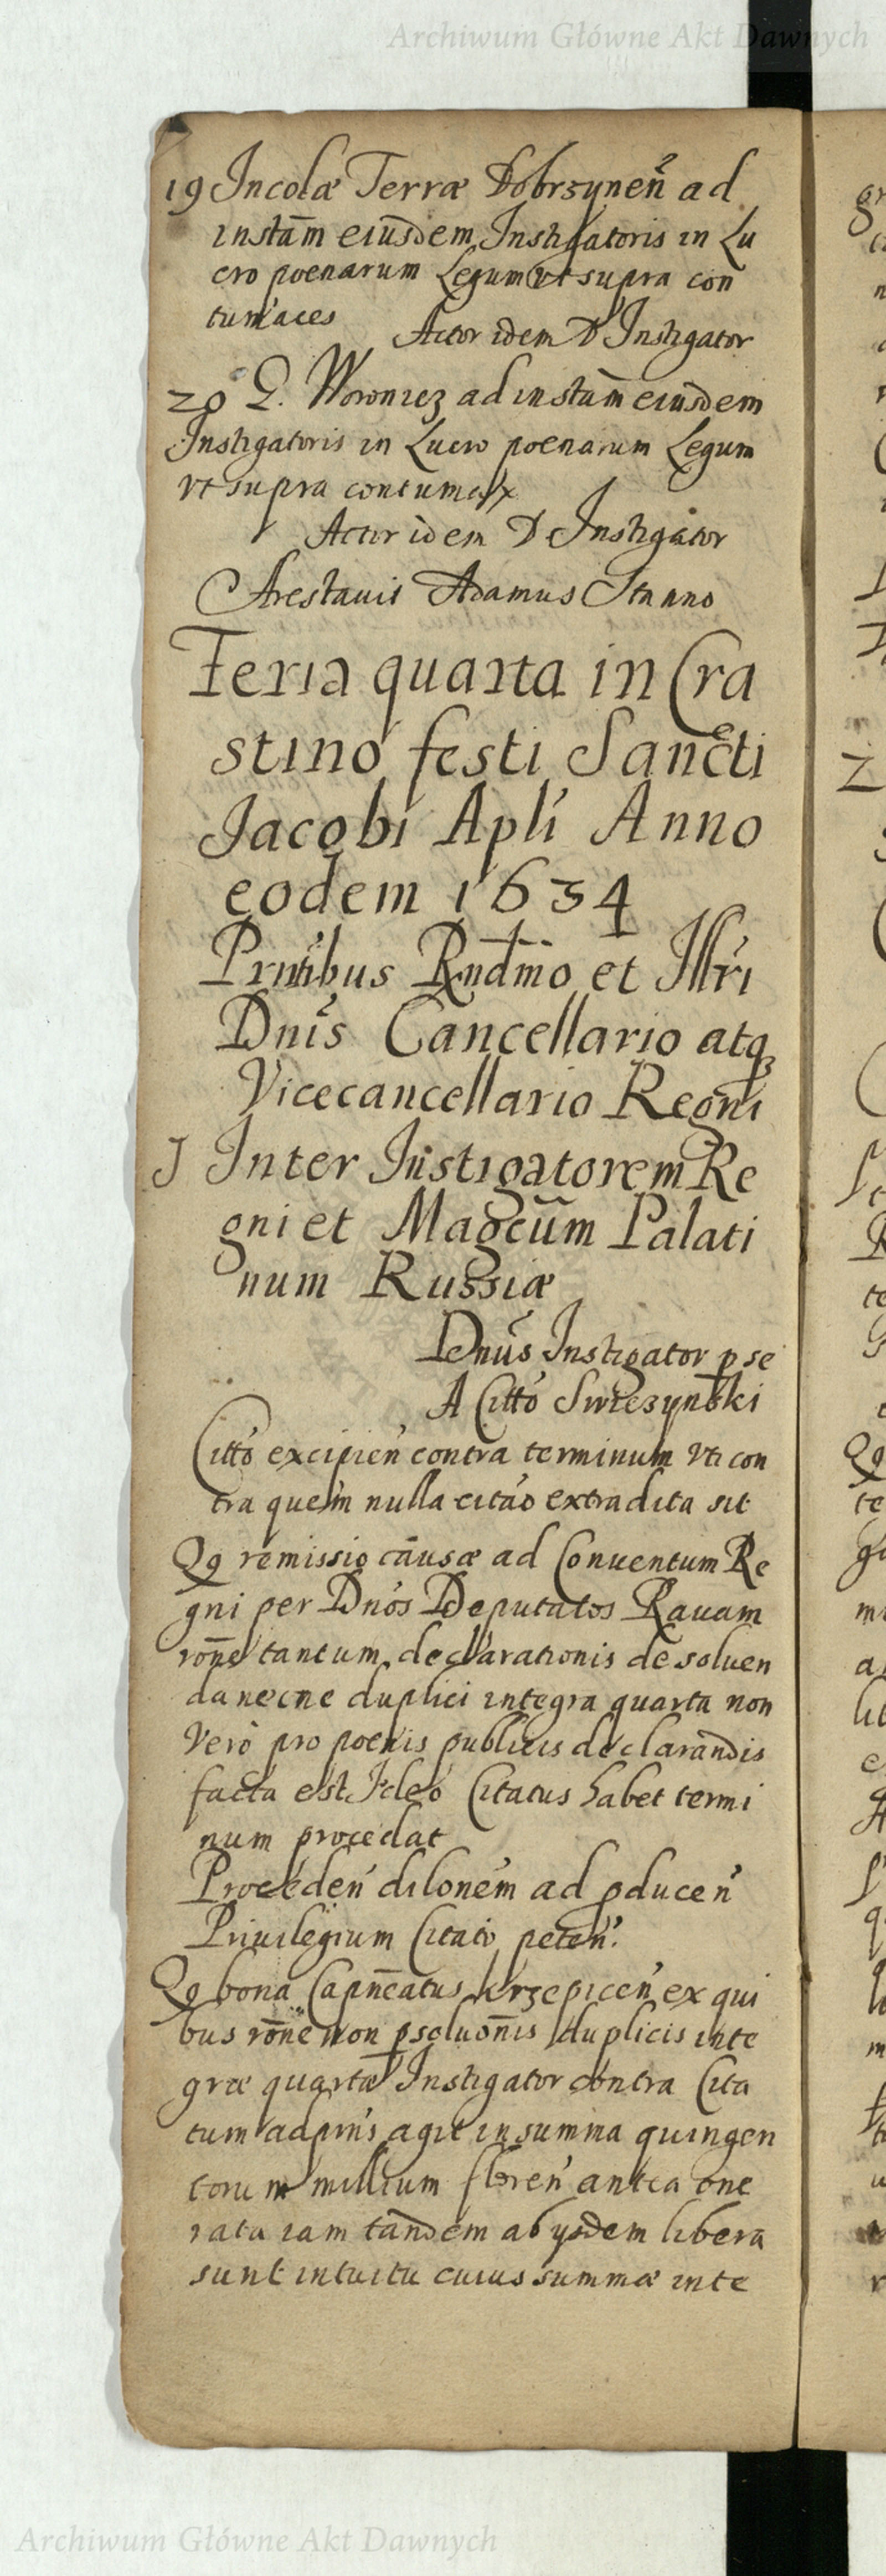 Archiwum Główne Akt Dawnych
19 Incolæ Terræ Dobrzyneñ ad
instam̃ eiusdem Instigatoris in Lu
cro poenarum Legum vt supra con
tumaces
Actor idem D Instigator
20 G. Woronicz ad instam̃ eiusdem
Instigatoris in Lucro poenarum Legum
vt supra contumax
Actor idem D Instigator
Arestauit Adamus
Feria quarta in Cra
stino festi Sancti
Jacobi Apli Anno
eodem 1634
Prntibus Rndmo et Illri
Dnis Cancellario atq
Vicecancellario Regni
1 Inter Instigatorem Re
gni et Magcum Palati
num Russiæ
Dnus Instigator p se
A Citto Swiezynski
Citto excipien contra terminum vti con
tra quem nulla citão extradita sit
Qq remissio causæ ad Conuentum Re
gni per Dnos Deputatos Rauam
rõne tantum declarationis de soluen
da necne duplici integra quarta non
Vero pro poenis publicis declarandis
facta est Ideo Citatus habet termi
num procedat
Proceden dilonem ad pducen
Priuilegium Citato peten.
Qq bona Capneatus Krzepicen ex qui
bus rõne non psoluonis duplicis inte
græ quartæ Instigator contra Cita
tum ad pns agit in summa quingen
torum millium floren antea one
rata iam tandem ab ysdem libera
sunt intuitu cuius summæ inte
Archiwum Główne Akt Dawnych